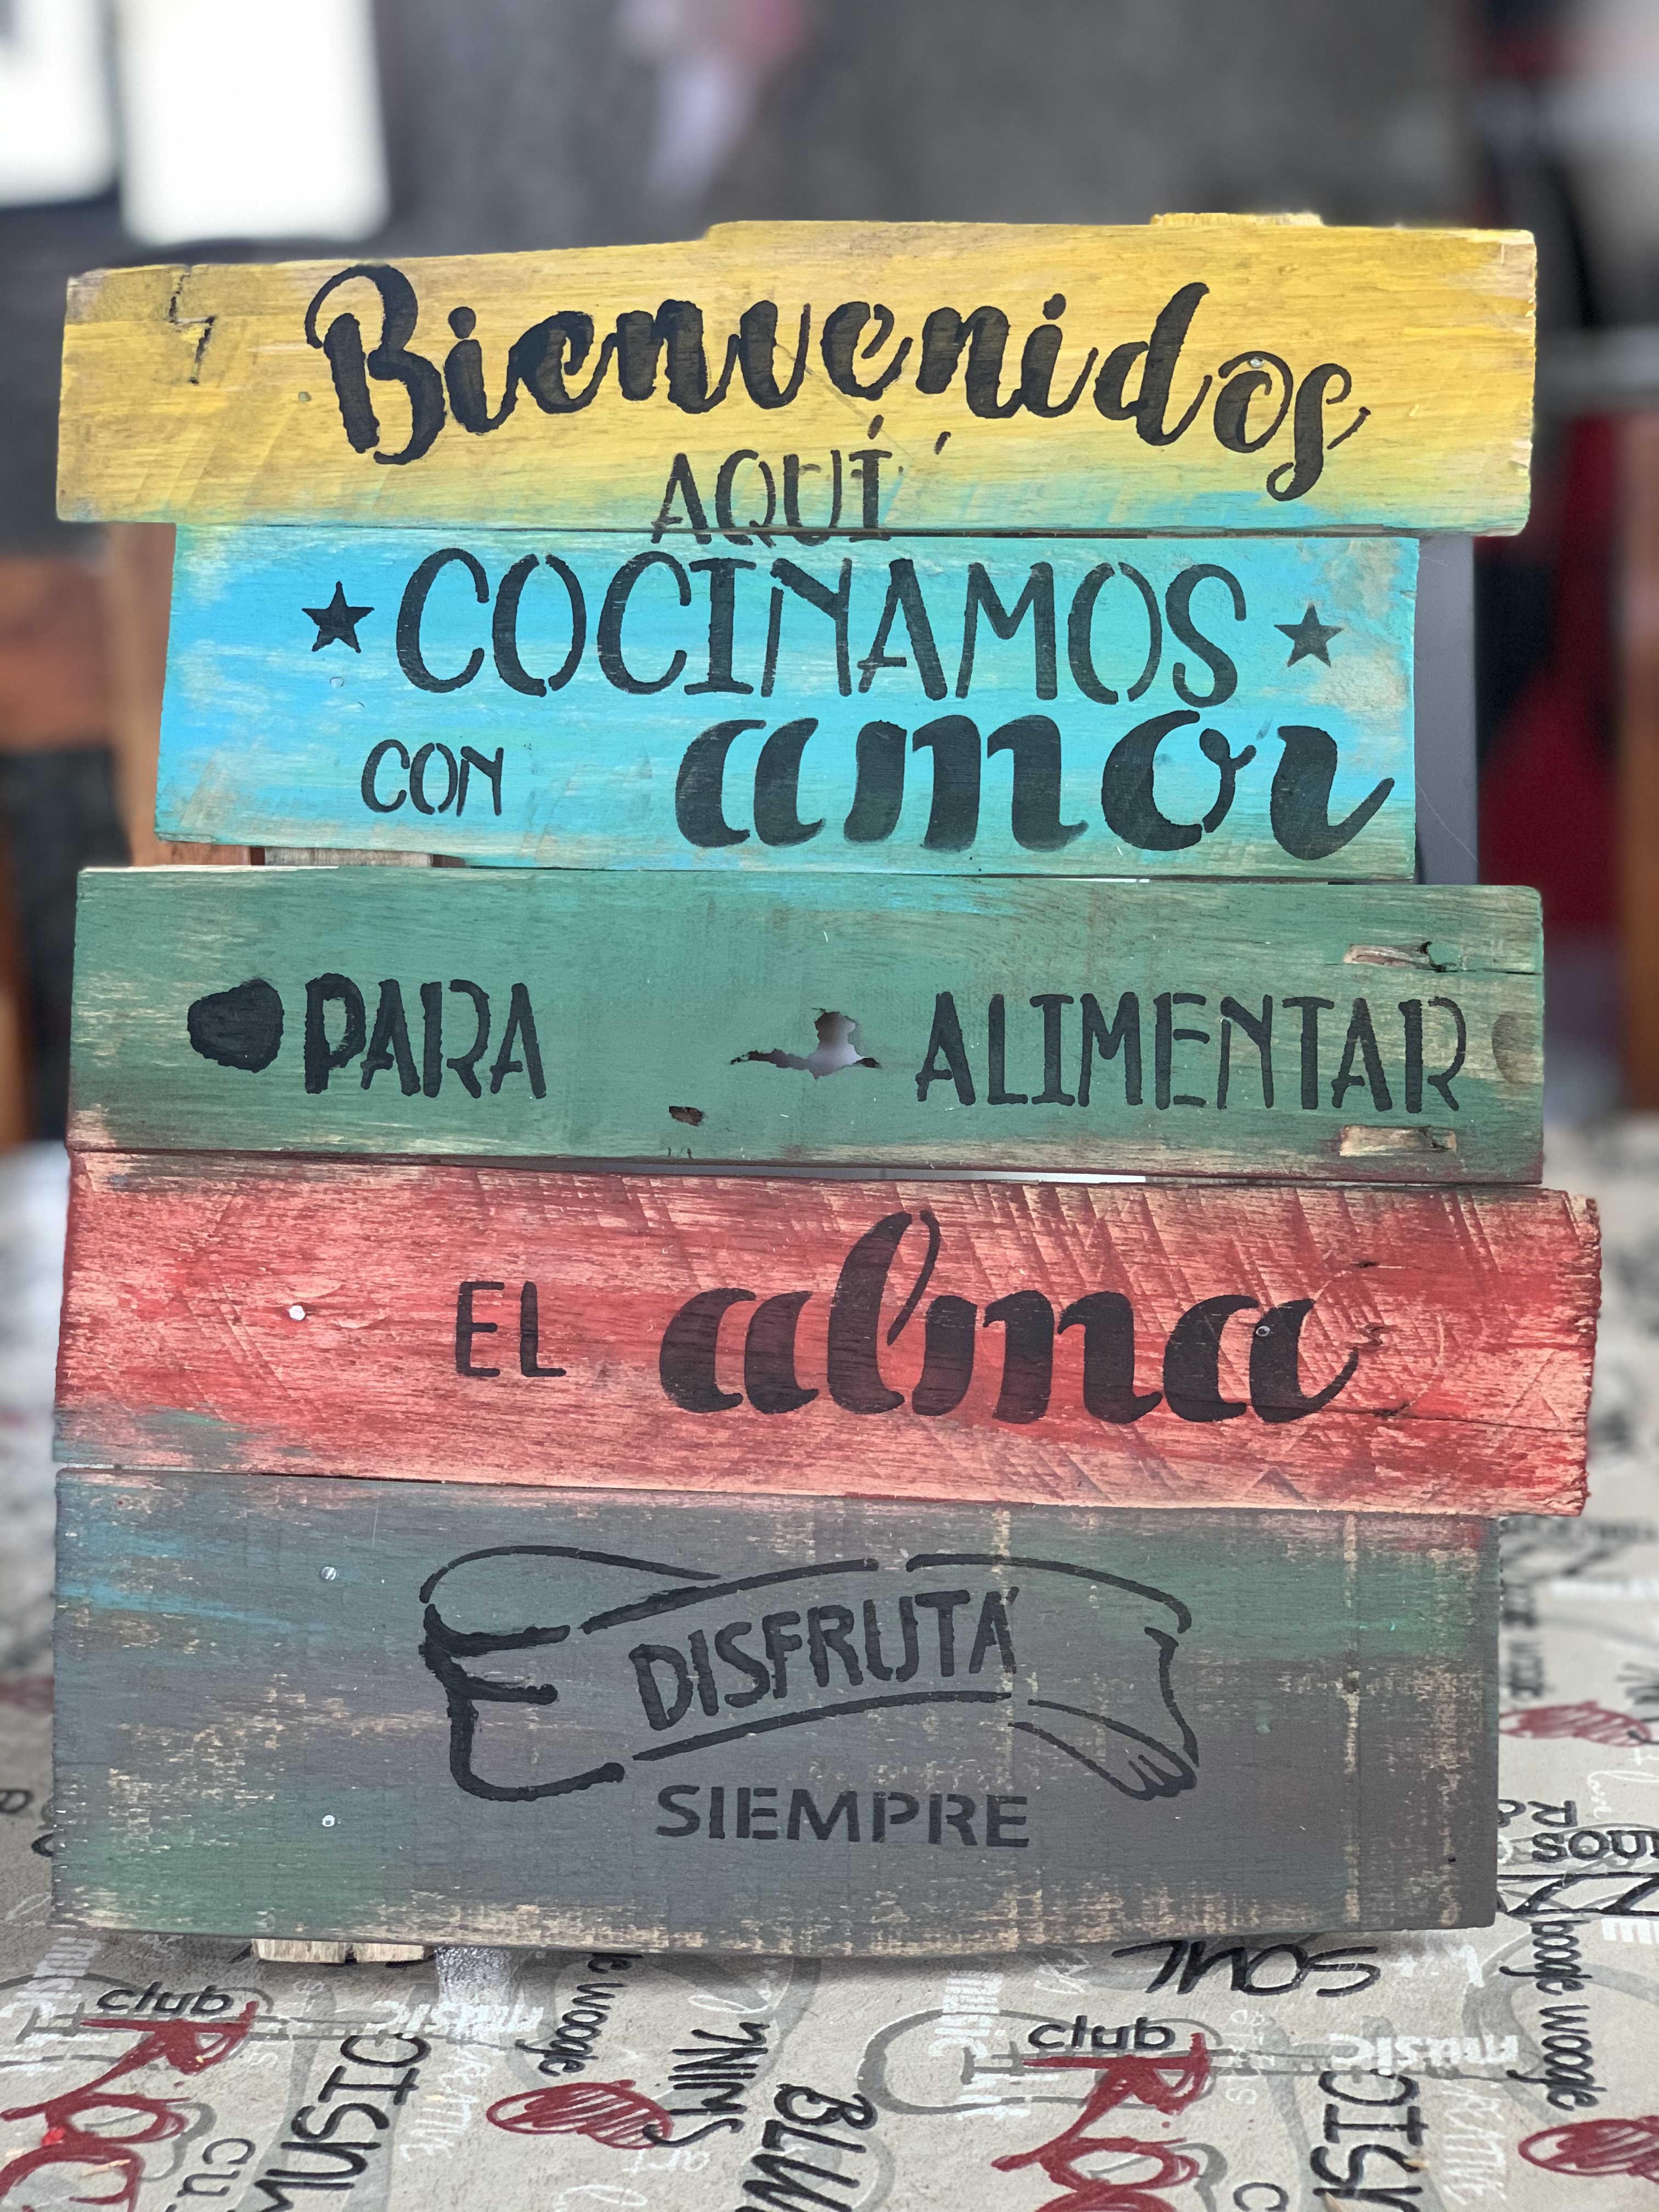 Bienvenidos
AQUÍ
COCINAMOS
CON amor
PARA ALIMENTAR
EL alma
DISFRUTÁ
SIEMPRE
SOUL
club
music
club
music
ROCK
MUSIC
SWING
ROCK
MUSIC